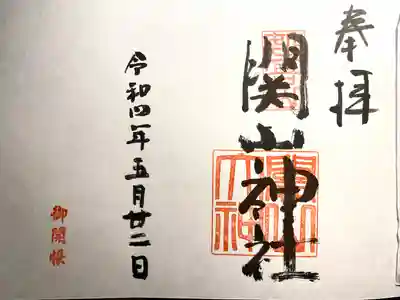 奉拝
関山神社
令和四年五月廿二日
御開帳